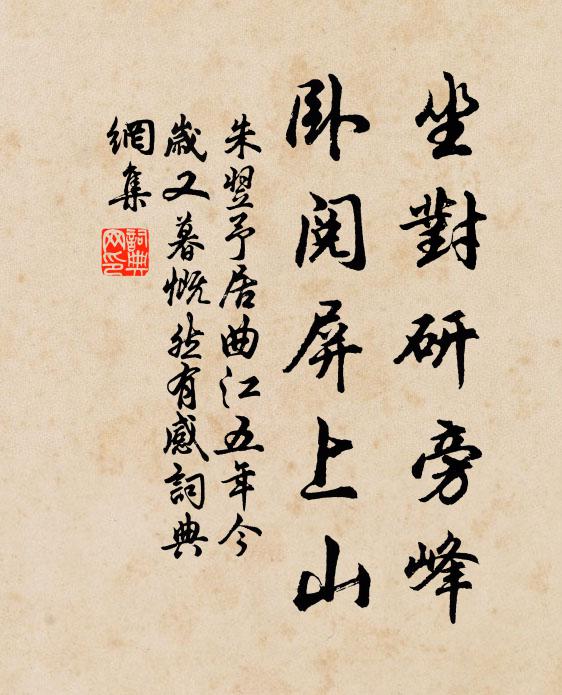 坐對研旁峰
卧閱屏上山
朱翌予居曲江五年今
歲又暮慨然有感詞典
網集
詞典網印